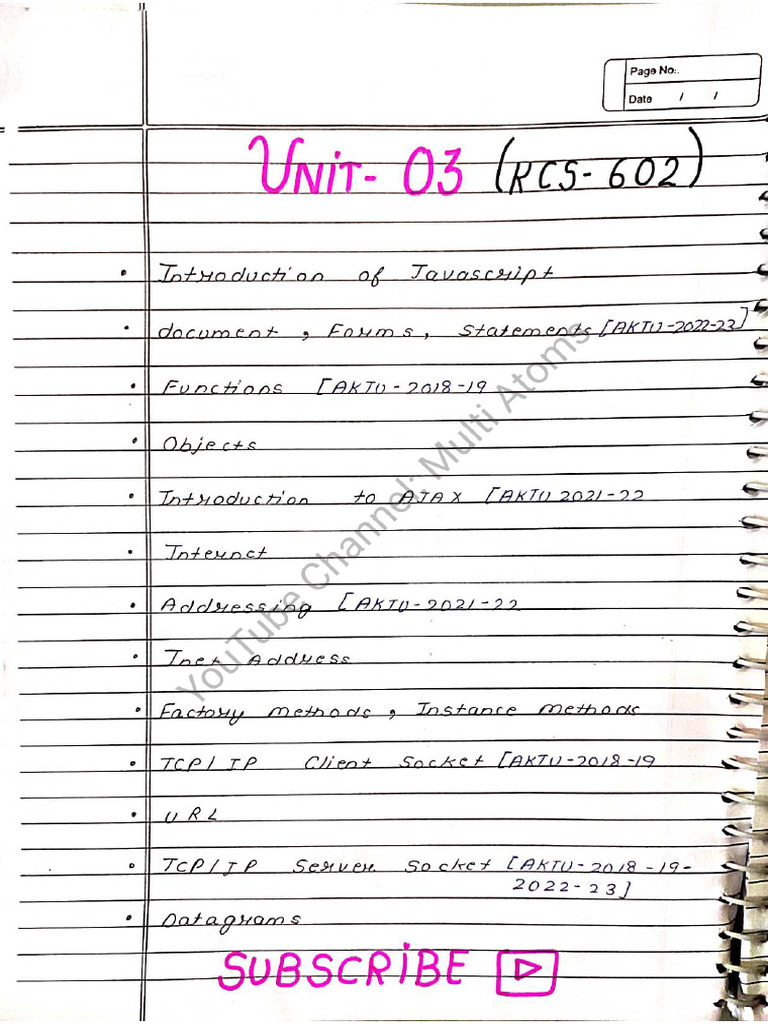 Page No:.
Date / /
UNiT- 03 (KCS-602)
• Introduction of Javascript
• document, Forms, Statements [AKTU-2022-23]
• Functions [AKTU-2018-19
• Objects
• Introduction to AJAX [AKTU 2021-22
• Internet
• Addressing [AKTU-2021-22
• Inet Address
• Factory methods, Instance methods
• TCP/IP Client Socket [AKTU-2018-19
• URL
• TCP/IP Server Socket [AKTU-2018-19-
2022-23]
• Datagrams
SUBSCRiBE
YouTube Channel: Multi Atoms